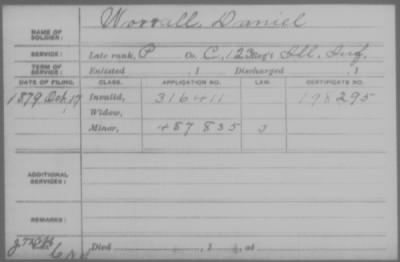 Worrall, Daniel
NAME OF SOLDIER:
SERVICE: Late rank, P Co. C, 123 Reg't Ill. Inf.
TERM OF SERVICE: Enlisted , 1 Discharged , 1
DATE OF FILING. CLASS. APPLICATION NO. LAW. CERTIFICATE NO.
1879 Oct. 17 Invalid, 316411 198295
Widow,
Minor, 487835 J
ADDITIONAL SERVICES:
REMARKS:
Died , 1 , at